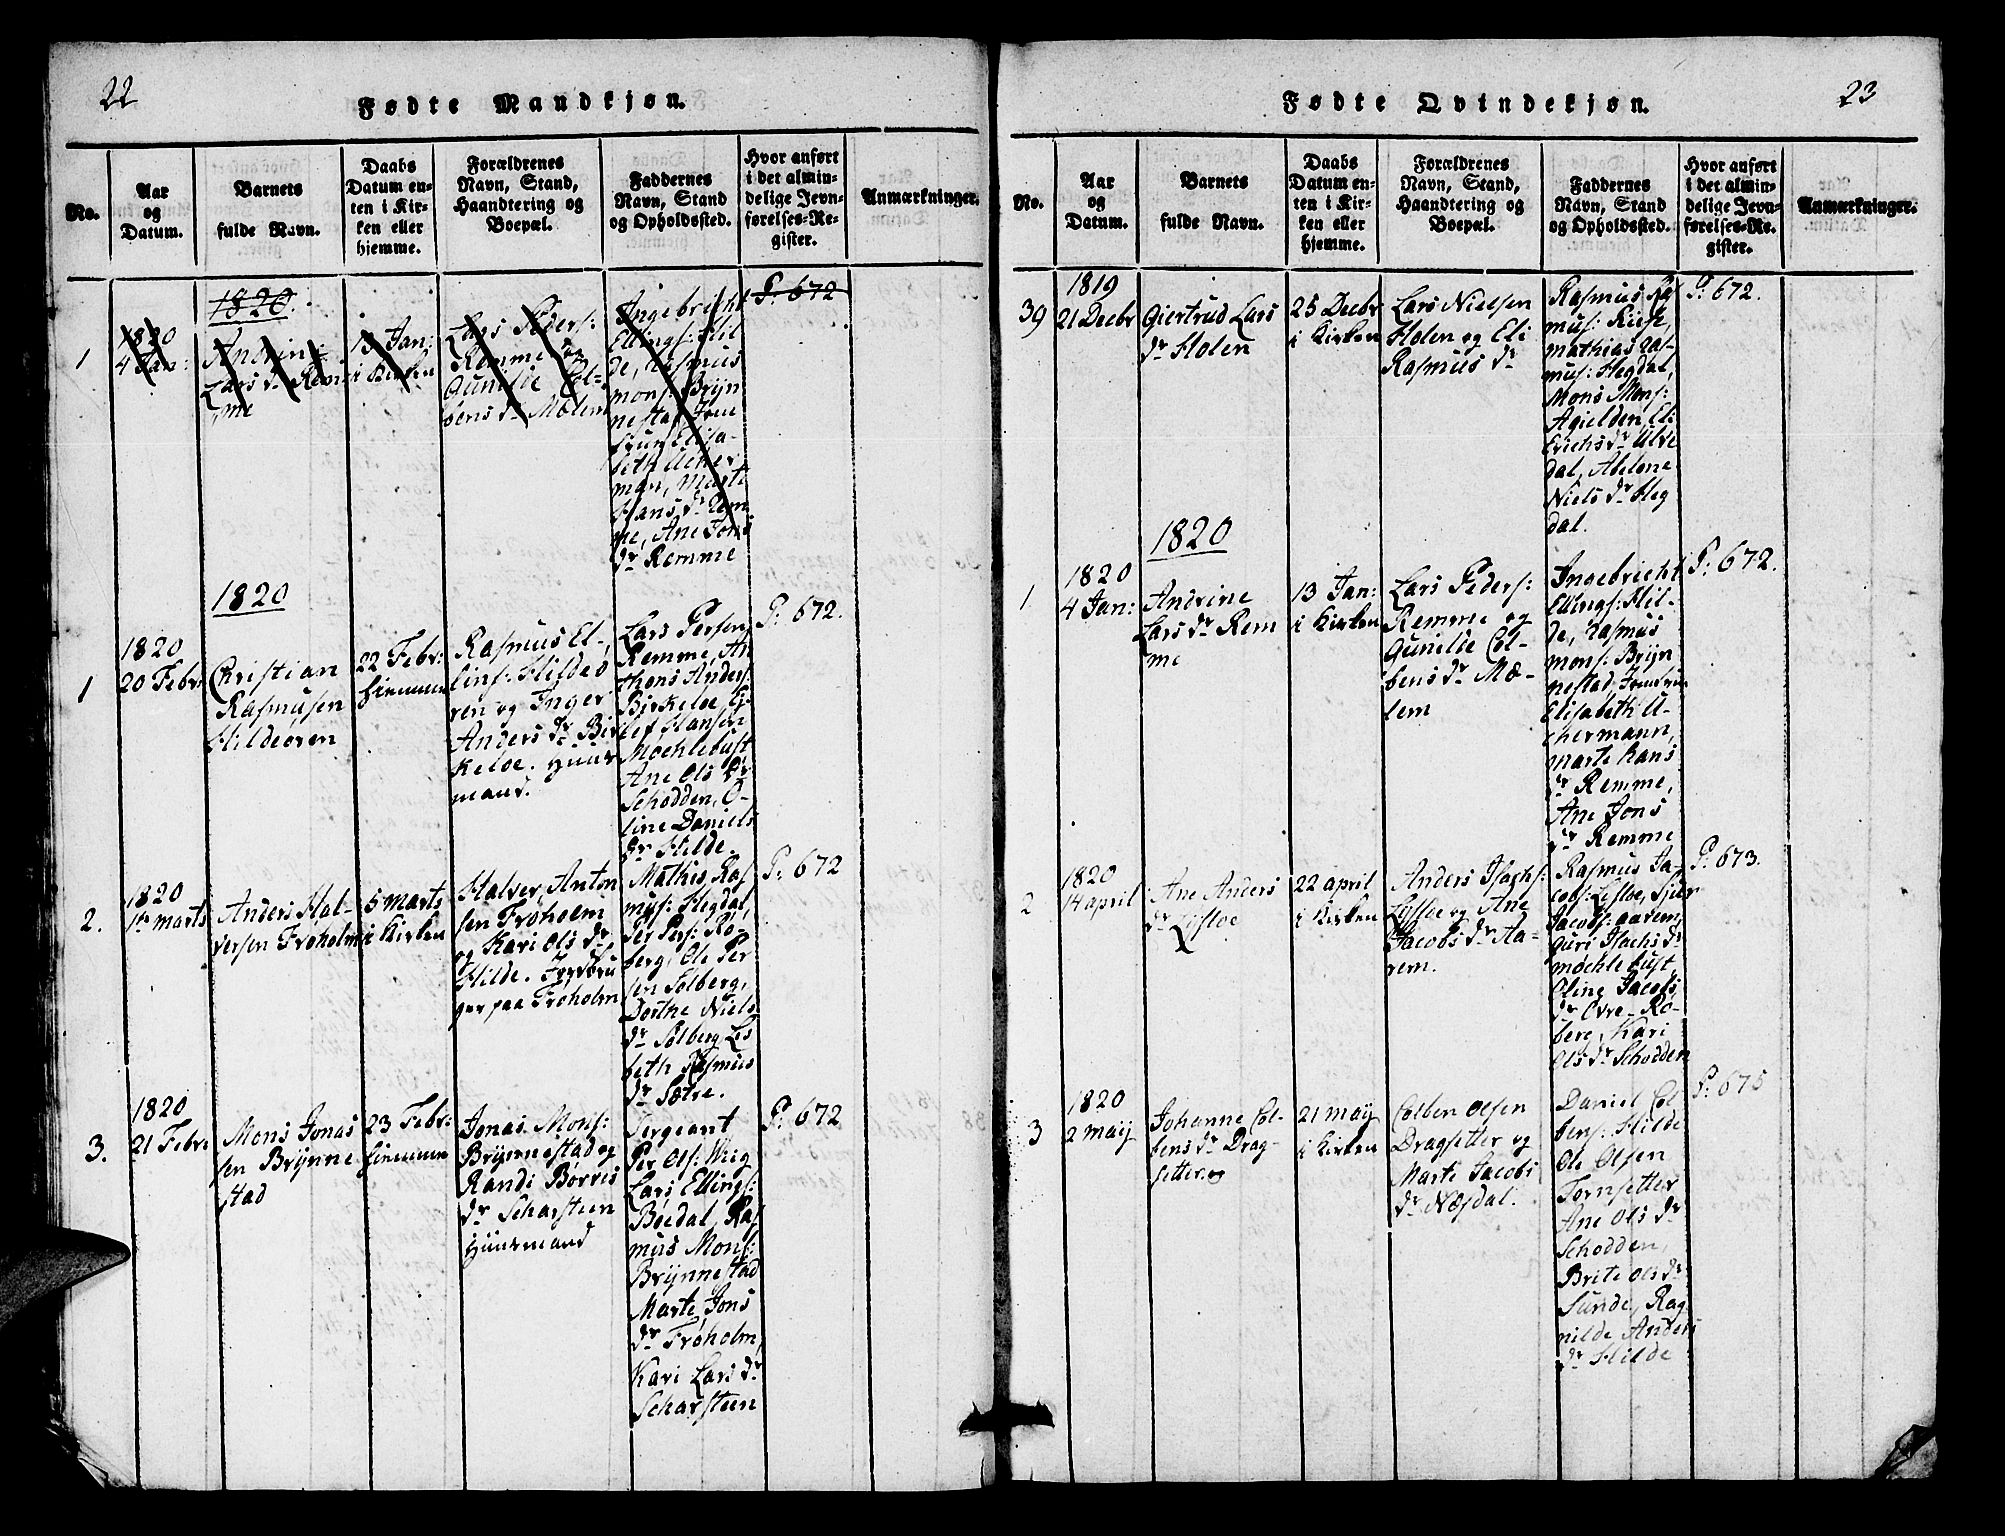 22
Fødte Mandkjøn.
No.
Aar
og
Datum.
Barnets
fulde Navn.
Daabs
Datum en-
ten i Kir-
ken eller
hjemme.
Forældrenes
Navn, Stand,
Haandtering og
Boepæl.
Faddernes
Navn, Stand
og Opholdssted.
Hvor anført
i det almin-
delige Jevn-
førelses-Re-
gister.
Anmærkninger.
1820.
1
1820
4 Jan:
Andrine
Lars dr Rem
me
13 Jan:
i Kirken
Lars Peders:
Remme og
Gunilde Col-
bens dr Mælem
Ingebricht
Ellings: Hil
de, Rasmus
mons: Brÿn
nestad, Jom
frue Elisa-
beth Acker
man, Marte
Hans dr Rem
me, Ane Jons
dr Remme
P: 672
1820
1
1820
20 Febr:
Christian
Rasmusen
Hildeøren
22 Febr:
hiemme
Rasmus El-
lins: Hildeø
ren og Inger
Anders dr Bir
keloe. Huus
mand.
Lars Persen
Remme, An
thons Anders:
Birkeloe, E
lef Hansen
Møchlebust
Ane Ols dr
Schodden, O-
line Daniels
dr Hilde.
P: 672.
2.
1820
1te marts
Anders Hal-
versen Frøholm
5 marts
i Kirken
Halver Anton
sen Frøholm
og Kari Ols dr
Hilde. Jordbru
ger paa Frøholm
Mathis Ras
mus: Hegdal,
Per Pers: Rø-
berg, Ole Per
sen Solberg,
Dorthe Niels
dr Solberg Lis
beth Rasmus
dr Sætre.
P: 672
3.
1820
21 Febr:
Mons Jonas
sen Brÿnne
stad
23 Febr:
hiemme
Jonas Mons:
Brÿnnestad og
Randi Børres
dr Scharsteen
Huusmand
Sergeant
Per Ols: Wiig
Lars Ellings:
Bøedal, Ras
mus Mons:
Brÿnnestad
Marte Jons
dr Frøholm,
Kari Lars dr
Scharsteen
P: 672
23
Fødte Qvindekjøn.
No.
Aar
og
Datum.
Barnets
fulde Navn.
Daabs
Datum en-
ten i Kir-
ken eller
hjemme.
Forældrenes
Navn, Stand,
Haandtering og
Boepæl.
Faddernes
Navn, Stand
og Opholdssted.
Hvor anført
i det almin-
delige Jevn-
førelses-Re-
gister.
Anmærkninger.
39
1819
21 Decbr
Giertrud Lars
dr Holen
25 Decbr
i Kirken
Lars Nielsen
Holen og Eli
Rasmus dr
Rasmus Ra
mus:
mathias Ras
mus: Hegdal,
Mons Mons:
Agielden, Eli
Erichs dr Ulve
dal, Abelone
Niels dr Heg
dal.
P: 672.
1820
1
1820
4 Jan:
Andrine
Lars dr Rem
me
13 Jan:
i Kirken
Lars Peders:
Remme og
Gunilde Col-
bens dr Mæ-
lem
Ingebricht
Ellings: Hil-
de, Rasmus
mons: Brÿn
nestad, Jomfrue
Elisabeth A-
chermann,
marte hans
dr Remme,
Ane Jons
dr Remme
P: 672.
2
1820
14 april
Ane Anders
dr Lofloe
22 april
i Kirken
Anders Isachs:
Lofloe og Ane
Jacobs dr Aa-
rem.
Rasmus Ja-
cobs: Lefloe,
Jacobs: aarem,
Guri Isachs dr
møchlebust,
Oline Jacobs
dr Øvre-Rø-
berg, Kari
Ols dr Schodden
P: 673.
3
1820
2 maÿ
Johanne Col-
bens dr Drag-
setter.
21 maÿ
i Kirken
Colben Olsen
Dragsetter og
Marte Jacobs
dr Næsdal.
Daniel Col
bens: Hilde
Ole Olsen
Tornsetter
Ane Ols dr
Schodden,
Brite Ols dr
Sunde, Rag
nilde Anders
dr Hilde
P: 675